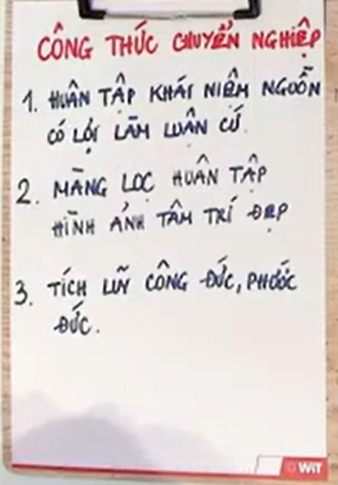 CÔNG THỨC CHUYỂN NGHIỆP
1. HUÂN TẬP KHÁI NIỆM NGUỒN
CÓ LỢI LÀM LUẬN CỨ.
2. MÀNG LỌC HUÂN TẬP
HÌNH ẢNH TÂM TRÍ ĐẸP
3. TÍCH LUỸ CÔNG ĐỨC, PHƯỚC
ĐỨC.
WIT